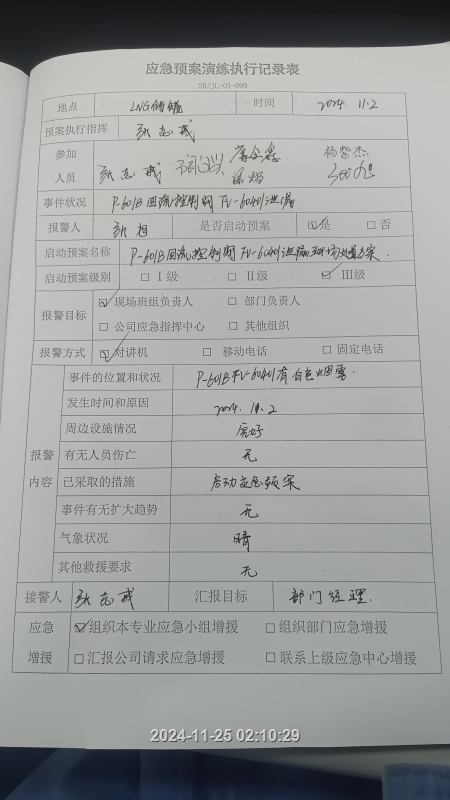 应急预案演练执行记录表
SR/JL-01-099
地点 LNG储罐 时间 2024.11.2
预案执行指挥 张志彧
参加人员 张志彧 杨紫杰
事件状况 P-601B回流控制阀FV-60401泄漏
报警人 张旭 是否启动预案 ☑是 □否
启动预案名称 P-601B回流控制阀FV-60401泄漏现场处置方案.
启动预案级别 □Ⅰ级 □Ⅱ级 ☑Ⅲ级
报警目标 ☑现场班组负责人 □部门负责人
□公司应急指挥中心 □其他组织
报警方式 ☑对讲机 □移动电话 □固定电话
报警内容
事件的位置和状况 P-601B FV-60401有白色烟雾.
发生时间和原因 2024.11.2
周边设施情况 完好
有无人员伤亡 无
已采取的措施 启动应急预案
事件有无扩大趋势 无
气象状况 晴
其他救援要求 无
接警人 张志彧 汇报目标 部门经理.
应急增援 ☑组织本专业应急小组增援 □组织部门应急增援
□汇报公司请求应急增援 □联系上级应急中心增援
2024-11-25 02:10:29